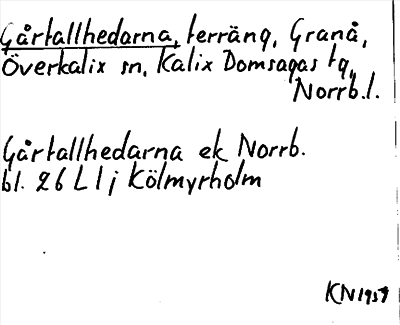 Gårtallhedarna, terräng, Granå,
Överkalix sn, Kalix Domsagas tg,
Norrb.l.
Gårtallhedarna ek Norrb.
bl. 26 L 1 j Kölmyrholm
KN 1959